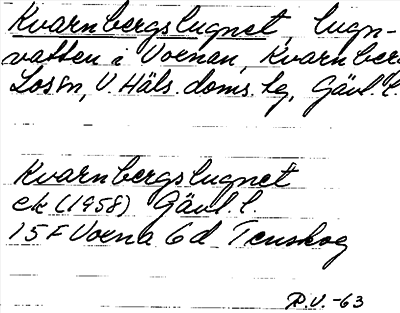 Kvarnbergslugnet, lugn-
vatten i Voxnan, Kvarnberg
Los sn, V. Häls. doms. lg, Gävl. l.
Kvarnbergslugnet
ek (1958) Gävl. l.
15 F Voxna 6d Tenskog
P.V. -63